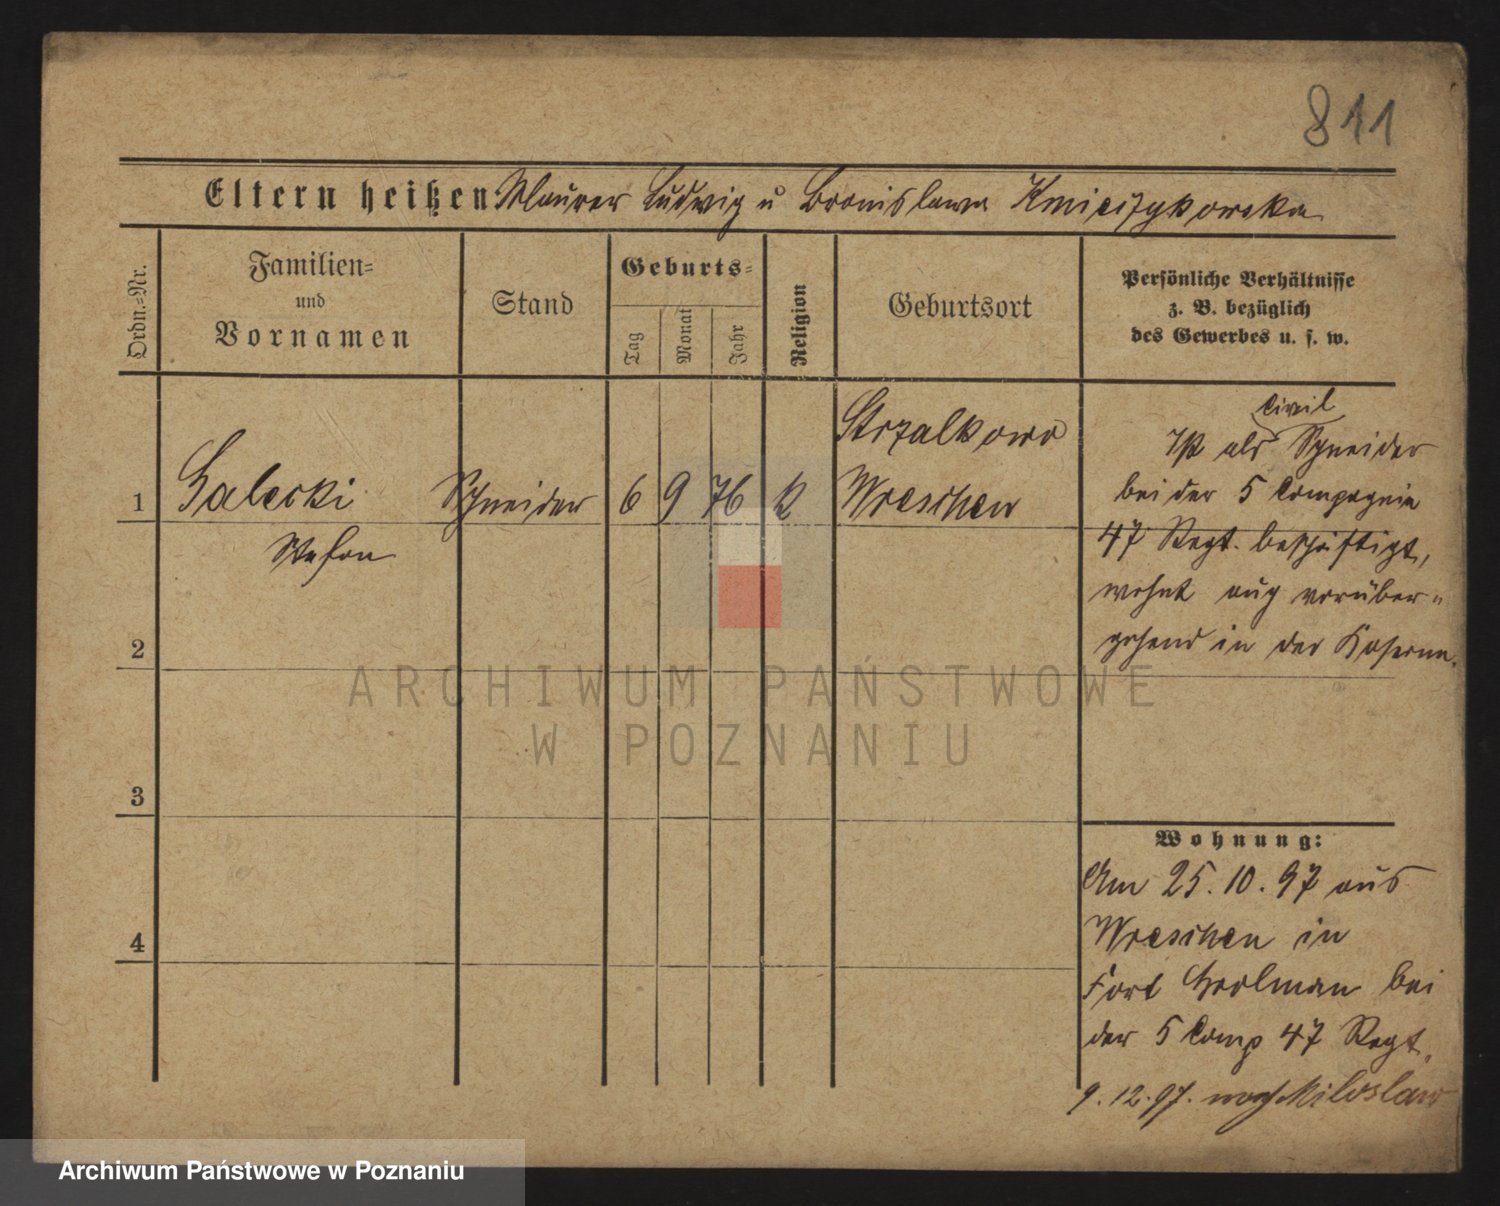 811
Eltern heißen Maurer Ludwig u Bronislawa Kmieczykowska
Ordn.=Nr.
Familien=
und
Vornamen
Stand
Geburts=
Tag
Monat
Jahr
Religion
Geburtsort
Persönliche Verhältnisse
z. B. bezüglich
des Gewerbes u. s. w.
1
Galecki
Stefan
Schneider
6
9
76
k
Strzalkowo
Wreschen
Civil
Ist als Schneider
bei der 5 Compagnie
47 Regt. beschäftigt,
wohnt auch vorüber=
gehend in der Kaserne.
2
3
4
Wohnung:
Am 25.10.97 aus
Wreschen in
Fort Grolman bei
der 5 Comp 47 Regt.
9.12.97. nach Miloslaw
ARCHIWUM PAŃSTWOWE
W POZNANIU
Archiwum Państwowe w Poznaniu